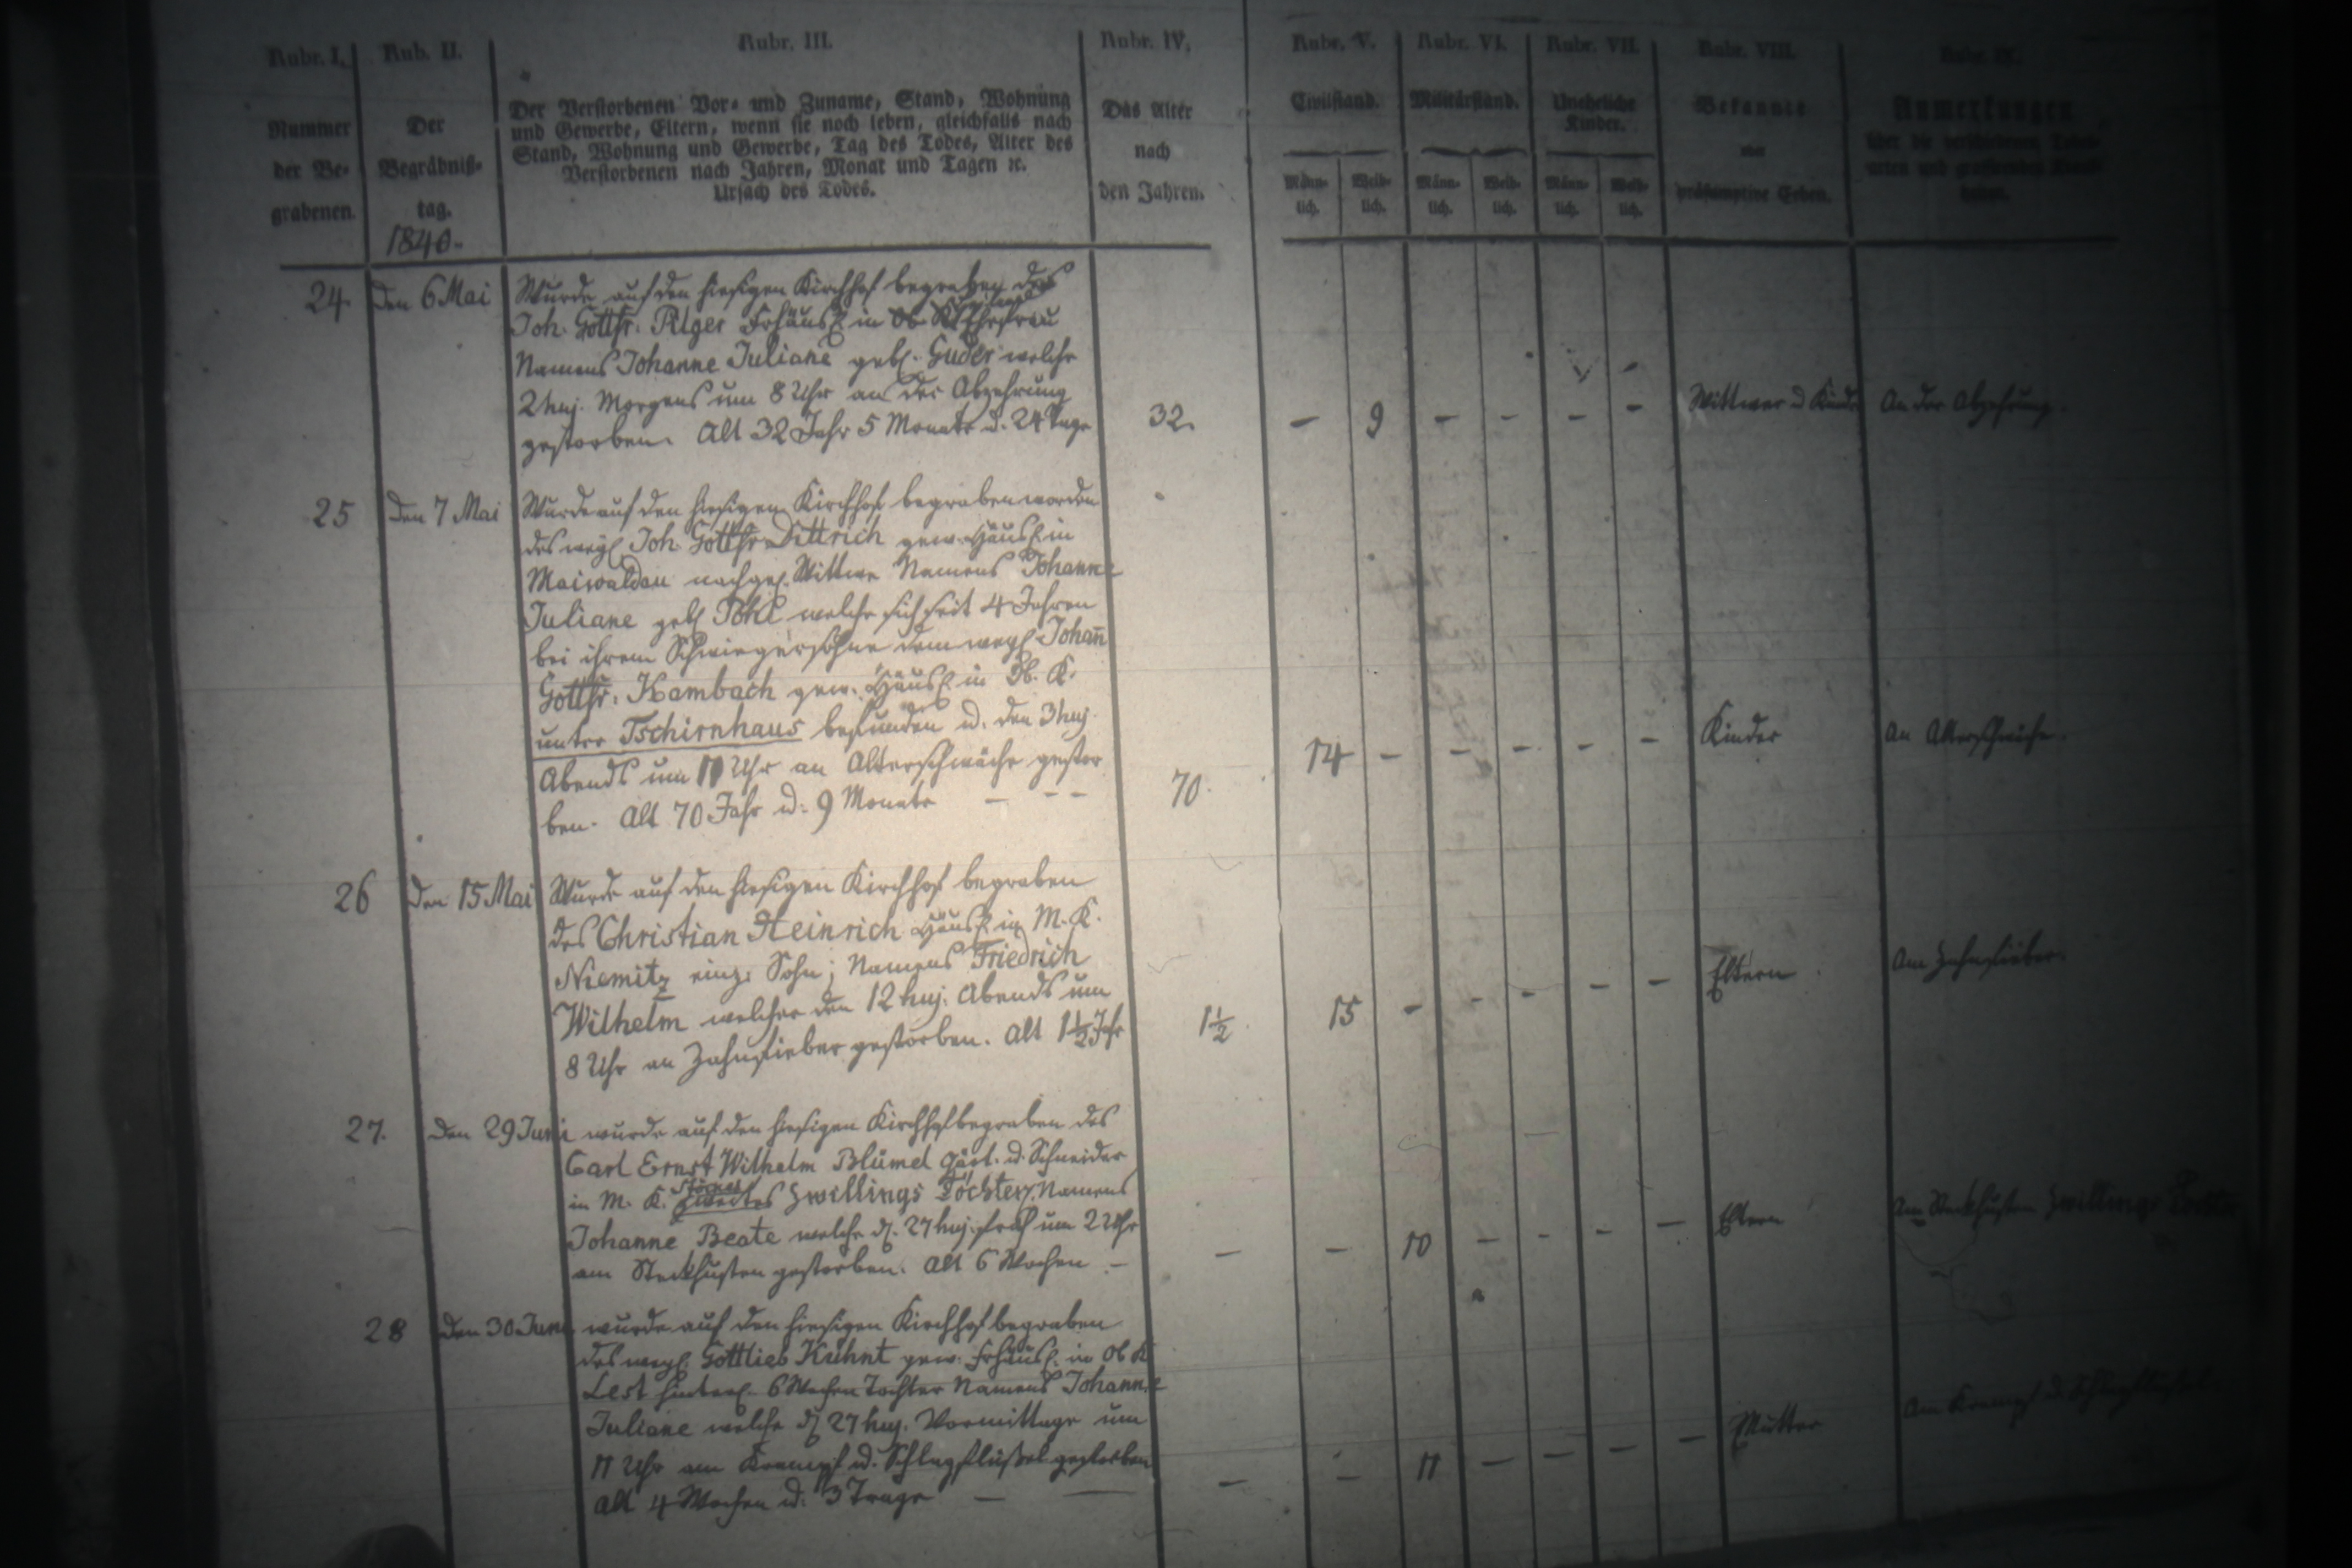 Rubr. I.
Nummer
der Be-
grabenen.
Rub. II.
Der
Begräbniß-
tag.
1840.
Rubr. III.
Der Verstorbenen Vor- und Zuname, Stand, Wohnung
und Gewerbe, Eltern, wenn sie noch leben, gleichfalls nach
Stand, Wohnung und Gewerbe, Tag des Todes, Alter des
Verstorbenen nach Jahren, Monat und Tagen ꝛc.
Ursach des Todes.
Rubr. IV.
Das Alter
nach
den Jahren.
Rubr. V.
Civilstand.
Männ-
lich.
Weib-
lich.
Rubr. VI.
Militärstand.
Männ-
lich.
Weib-
lich.
Rubr. VII.
Uneheliche
Kinder.
Männ-
lich.
Weib-
lich.
Rubr. VIII.
Bekannte
präsumptive Erben.
Rubr. IX.
Anmerkungen
24. den 6 Mai
Wurde auf den hiesigen Kirchhof begraben des
Joh. Gottfr. Pilger Frhäusl. in Ob. Ehefrau
Namens Johanne Juliane geb. Guder welche
2 huj. Morgens um 8 Uhr an der Abzehrung
gestorben. Alt 32 Jahr 5 Monate u. 24 Tage
32. – 9 – – – – Wittwer u Kinder An der Abzehrung.
25 den 7 Mai
Wurde auf den hiesigen Kirchhof begraben worden
des weyl. Joh. Gottfr. Dittrich gew. Häusl. in
Maiwaldau nachgel. Wittwe Namens Johanne
Juliane geb. Pohl welche sich seit 4 Jahren
bei ihrem Schwiegersohne dem weyl. Johañ
Gottfr. Hambach gew. Häusl. in Ob. K.
unter Tschirnhaus befunden u. den 3 huj.
Abends um 11 Uhr an Altersschwäche gestor
ben. Alt 70 Jahr u. 9 Monate – – –
70. 14 – – – – – Kinder An Altersschwäche.
26 den 15 Mai
Wurde auf den hiesigen Kirchhof begraben
des Christian Heinrich Häusl. in M. K.
Niemitz einz. Sohn; Namens Friedrich
Wilhelm welcher den 12 huj. Abends um
8 Uhr an Zahnfieber gestorben. Alt 1½ Jahr
1½ 15 – – – – – Eltern Am Zahnfieber.
27. den 29 Juni
wurde auf den hiesigen Kirchhof begraben des
Carl Ernst Wilhelm Blümel Gärt. u. Schneider
in M. K. Zwillings Tochter, Namens
Johanne Beate welche d. 27 huj. früh um 2 Uhr
am Steckhusten gestorben. Alt 6 Wochen –
– – 10 – – – – Eltern Am Steckhusten Zwillings Tochter
28 den 30 Juni
wurde auf den hiesigen Kirchhof begraben
des weyl. Gottlieb Kuhnt gew. Frhäusl. in Ob K
Lest hinterl. 6 Wochen Tochter Namens Johanne
Juliane welche d. 27 huj. Vormittage um
11 Uhr am Krampf u. Schlagflußel gestorben
Alt 4 Wochen u. 3 Tage –
– – 11 – – – – Mutter Am Krampf u. Schlagflußel